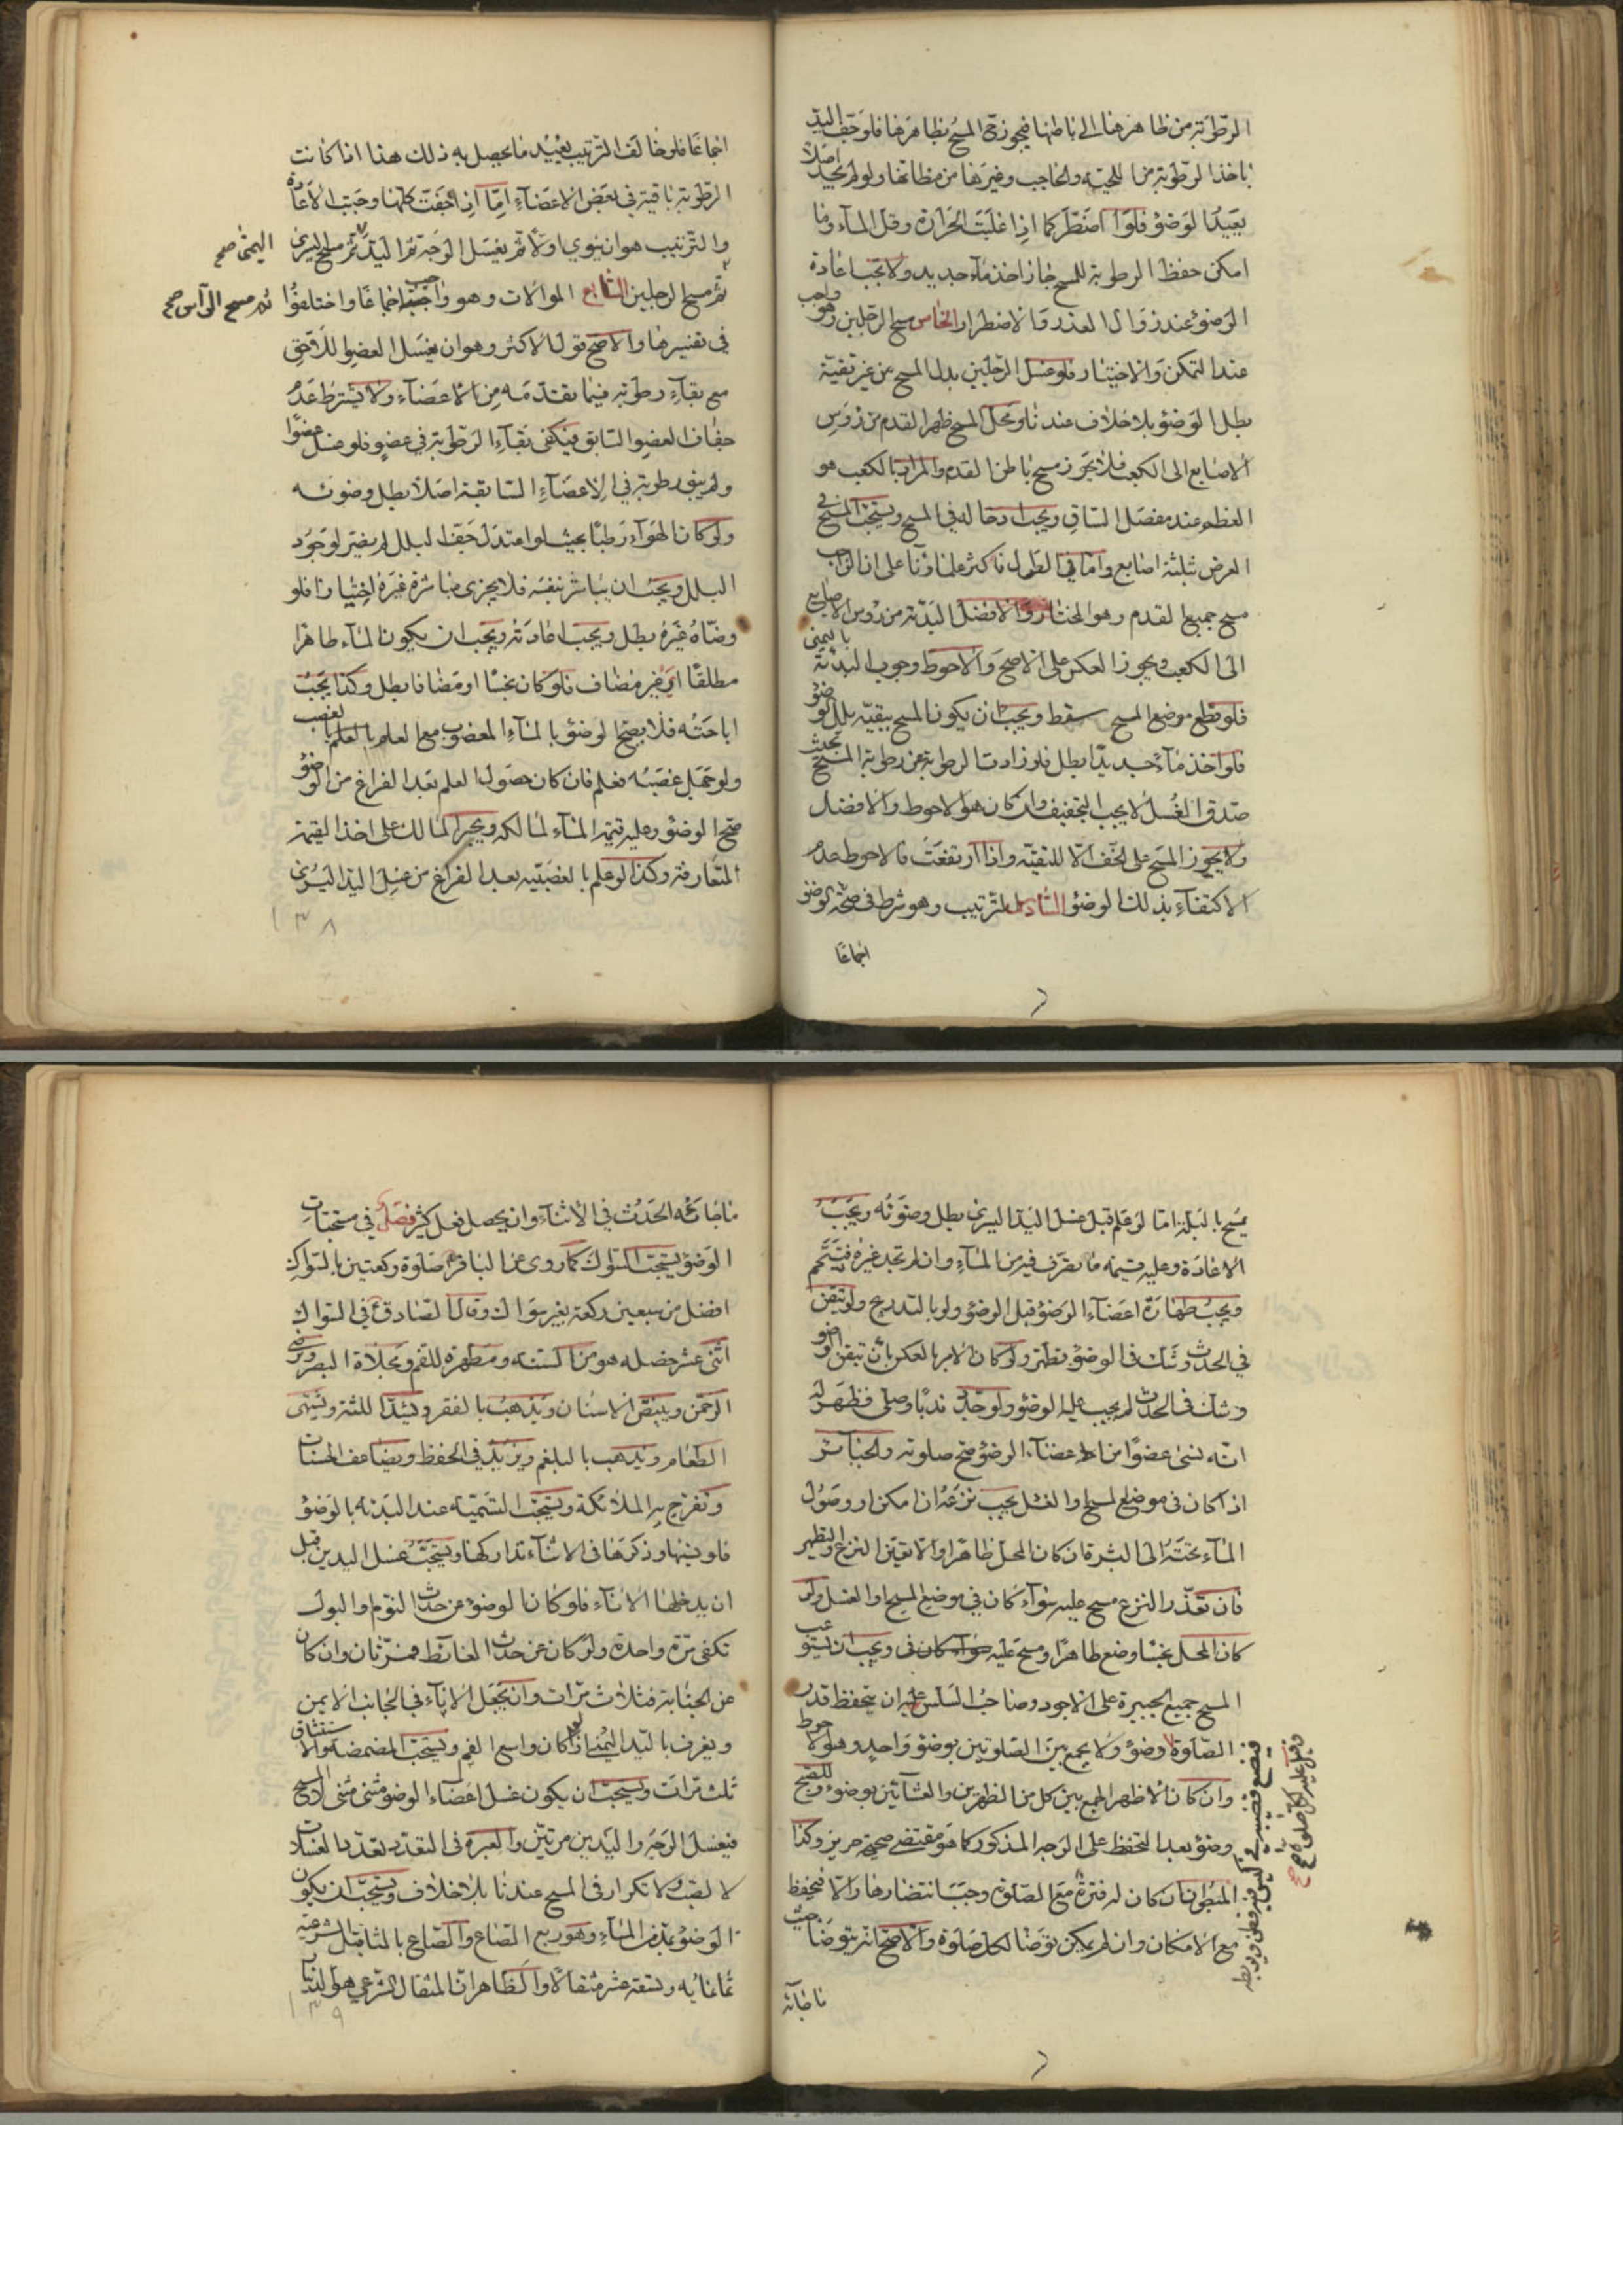 الرطوبة من ظاهرها الى باطنها فيجوز ح المسح بظاهرها فلو جف اليد
ياخذ الرطوبة من اللحية والحاجب وغيرها من مظانها ولو لم يجد اصلا
يعيد الوضوء فلو اضطر كما اذا غلبت الحرارة وقل الماء وما
امكن حفظ الرطوبة للمسح جاز اخذ ماء جديد ولا يجب اعادة
الوضوء عند زوال العذر والاضطرار الخامس مسح الرجلين وهو واجب
عند التمكن والاختيار فلو غسل الرجلين بدل المسح من غير تقية
بطل الوضوء بلا خلاف عندنا ومحل المسح ظهر القدم من رؤس
الاصابع الى الكعب فلا يجوز مسح باطن القدم والمراد بالكعب هو
العظم عند مفصل الساق ويجب ادخاله في المسح ويستحب المسح في
العرض بثلثة اصابع واما في الطول فاكثر علمائنا على ان الواجب
مسح جميع القدم وهو المختار والافضل البدئة من رؤس الاصابع
الى الكعب ويجوز العكس على الاصح والاحوط وجوب البدئة باليمنى
فلو قطع موضع المسح سقط ويجب ان يكون المسح ببقية بلل الوضوء
فلو اخذ ماء جديدا بطل فلو زادت الرطوبة عن رطوبة المسح بحيث
صدق الغسل لا يجب التجفيف وان كان هو الاحوط والافضل
ولا يجوز المسح على الخف الا للتقية واذا ارتفعت فالاحوط عدم
الاكتفاء بذلك الوضوء السادس الترتيب وهو شرط في صحة الوضوء
اجماعا
اجماعا فلو خالف الترتيب يعيد ما يحصل به ذلك هذا اذا كانت
الرطوبة باقية في بعض الاعضاء اما اذا جفت كلها وجبت الاعادة
والترتيب هو ان ينوي اولا ثم يغسل الوجه ثم اليد ثم مسح اليسرى
اليمنى صح
ثم مسح الرجلين السابع الموالات وهو واجب اجماعا واختلفوا
ثم مسح الرأس صح
في تفسيرها والاصح قول الاكثر وهو ان يغسل العضو اللاحق
مع بقاء رطوبة فيما تقدمه من الاعضاء ولا يشترط عدم
جفاف العضو السابق فيكفي بقاء الرطوبة في عضو فلو غسل عضوا
ولم يبق رطوبة في الاعضاء السابقة اصلا بطل وضوئه
ولو كان الهواء رطبا بحيث لو اعتدل جف البلل لم يضر لوجود
البلل ويجب ان يباشر بنفسه فلا يجزي مباشرة غيره اختيارا فلو
وضاه غيره بطل ويجب اعادته ويجب ان يكون الماء طاهرا
مطلقا اي غير مضاف فلو كان نجسا او مضافا بطل وكذا يجب
اباحته فلا يصح الوضوء بالماء المغصوب مع العلم بالغصب
ولو جهل غصبه فعلم فان كان حصول العلم بعد الفراغ من الوضوء
صح الوضوء وعليه قيمة الماء لمالكه ويجبر المالك على اخذ القيمة
المتعارفة وكذا لو علم بالغصبية بعد الفراغ من غسل اليد اليسرى
١٣٨
يمسح بالبلة اما لو علم قبل غسل اليد اليسرى بطل وضوئه ويجب
الاعادة وعليه قيمة ما تصرف فيه من الماء وان لم تجد غيره فتيمم
ويجب طهارة اعضاء الوضوء قبل الوضوء ولو بالتدريج ولو تيقن
في الحدث وشك في الوضوء تطهر ولو كان الامر بالعكس بان تيقن الوضوء
وشك في الحدث لم يجب عليه الوضوء ولو جدد ندبا وصلى فظهر له
انه نسى عضوا من اعضاء الوضوء صح صلوته والجبائر
اذا كان في موضع المسح والغسل يجب نزعه ان امكن او وصول
الماء تحته الى البشرة ان كان المحل طاهرا والا تعين النزع والتطهير
فان تعذر النزع مسح عليه سواء كان في موضع المسح او الغسل ولو
كان المحل نجسا وضع طاهرا ومسح عليه ويجب ان يستوعب
المسح جميع الجبيرة على الاجود وصاحب السلس عليه ان يتحفظ قدر
الصلوة وضوء ولا يجمع بين الصلوتين بوضوء واحد وهو الاحوط
وان كان الاظهر الجمع بين كل من الظهرين والعشائين بوضوء وللصبح
وضوء بعد التحفظ على الوجه المذكور كما هو مقتضى صحيحة حريز وكذا
المبطون ان كان له فترة مع الصلوة وجب انتضارها والا فيحفظ
مع الامكان وان لم يمكن توضا لكل صلوة والاصح انه يتوضا حيث
ما فجائه
ما فجائه الحدث في الاثناء وان يحصل فعل كثير فصل في مستحبات
الوضوء يستحب السواك كما روى عن الباقر ع صلوة ركعتين بالسواك
افضل من سبعين ركعة بغير سواك وقال الصادق ع في السواك
اثنى عشر خصلة هو من السنة ومطهرة للفم ومجلاة البصر ويرضى
الرحمن ويبيض الاسنان ويذهب بالفقر ويشد اللثة ويشهى
الطعام ويذهب بالبلغم ويزيد في الحفظ ويضاعف الحسنات
وتفرح به الملائكة ويستحب التسمية عند البدئة بالوضوء
فلو نسيها وذكرها في الاثناء تداركها ويستحب غسل اليدين قبل
ان يدخلها الاناء فلو كان الوضوء من حدث النوم والبول
تكفى مرة واحدة ولو كان عن حدث الغائط فمرتان وان كان
عن الجنابة فثلاث مرات وان يجعل الاناء في الجانب الايمن
ويغرف باليد اليمنى لو كان واسع الفم ويستحب المضمضة والاستنشاق
ثلث مرات ويستحب ان يكون غسل اعضاء الوضوء مثنى مثنى
فيغسل الوجه واليدين مرتين والعبرة في التعدد بتعدد الغسلات
لا الصب ولا تكرار في المسح عندنا بلا خلاف ويستحب ان يكون
الوضوء بمد من الماء وهو ربع الصاع والصاع بالمثاقيل الشرعية
ثمانمائة وتسعة عشر مثقالا والظاهر ان المثقال الشرعي هو الدينار
١٣٩